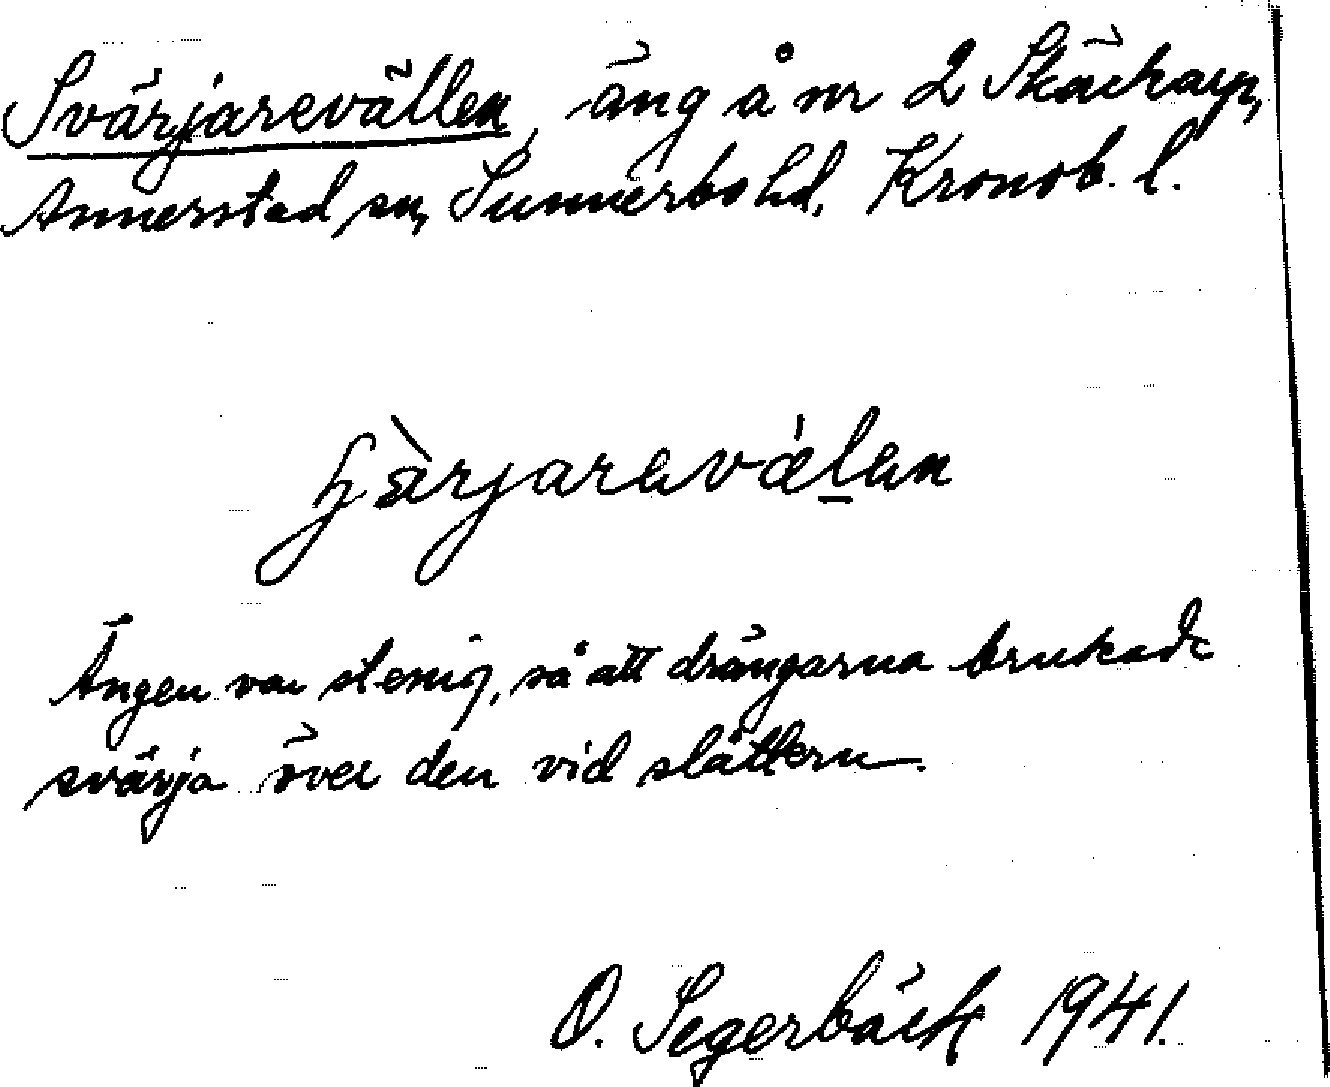 Svärjarevällen, äng å nr 2 Skäckarp,
Annerstad sn, Sunnerbo hd, Kronob. l.
Ängen var stenig, så att drängarna brukade
svärja över den vid slåttern.
O. Segerbäck 1941.